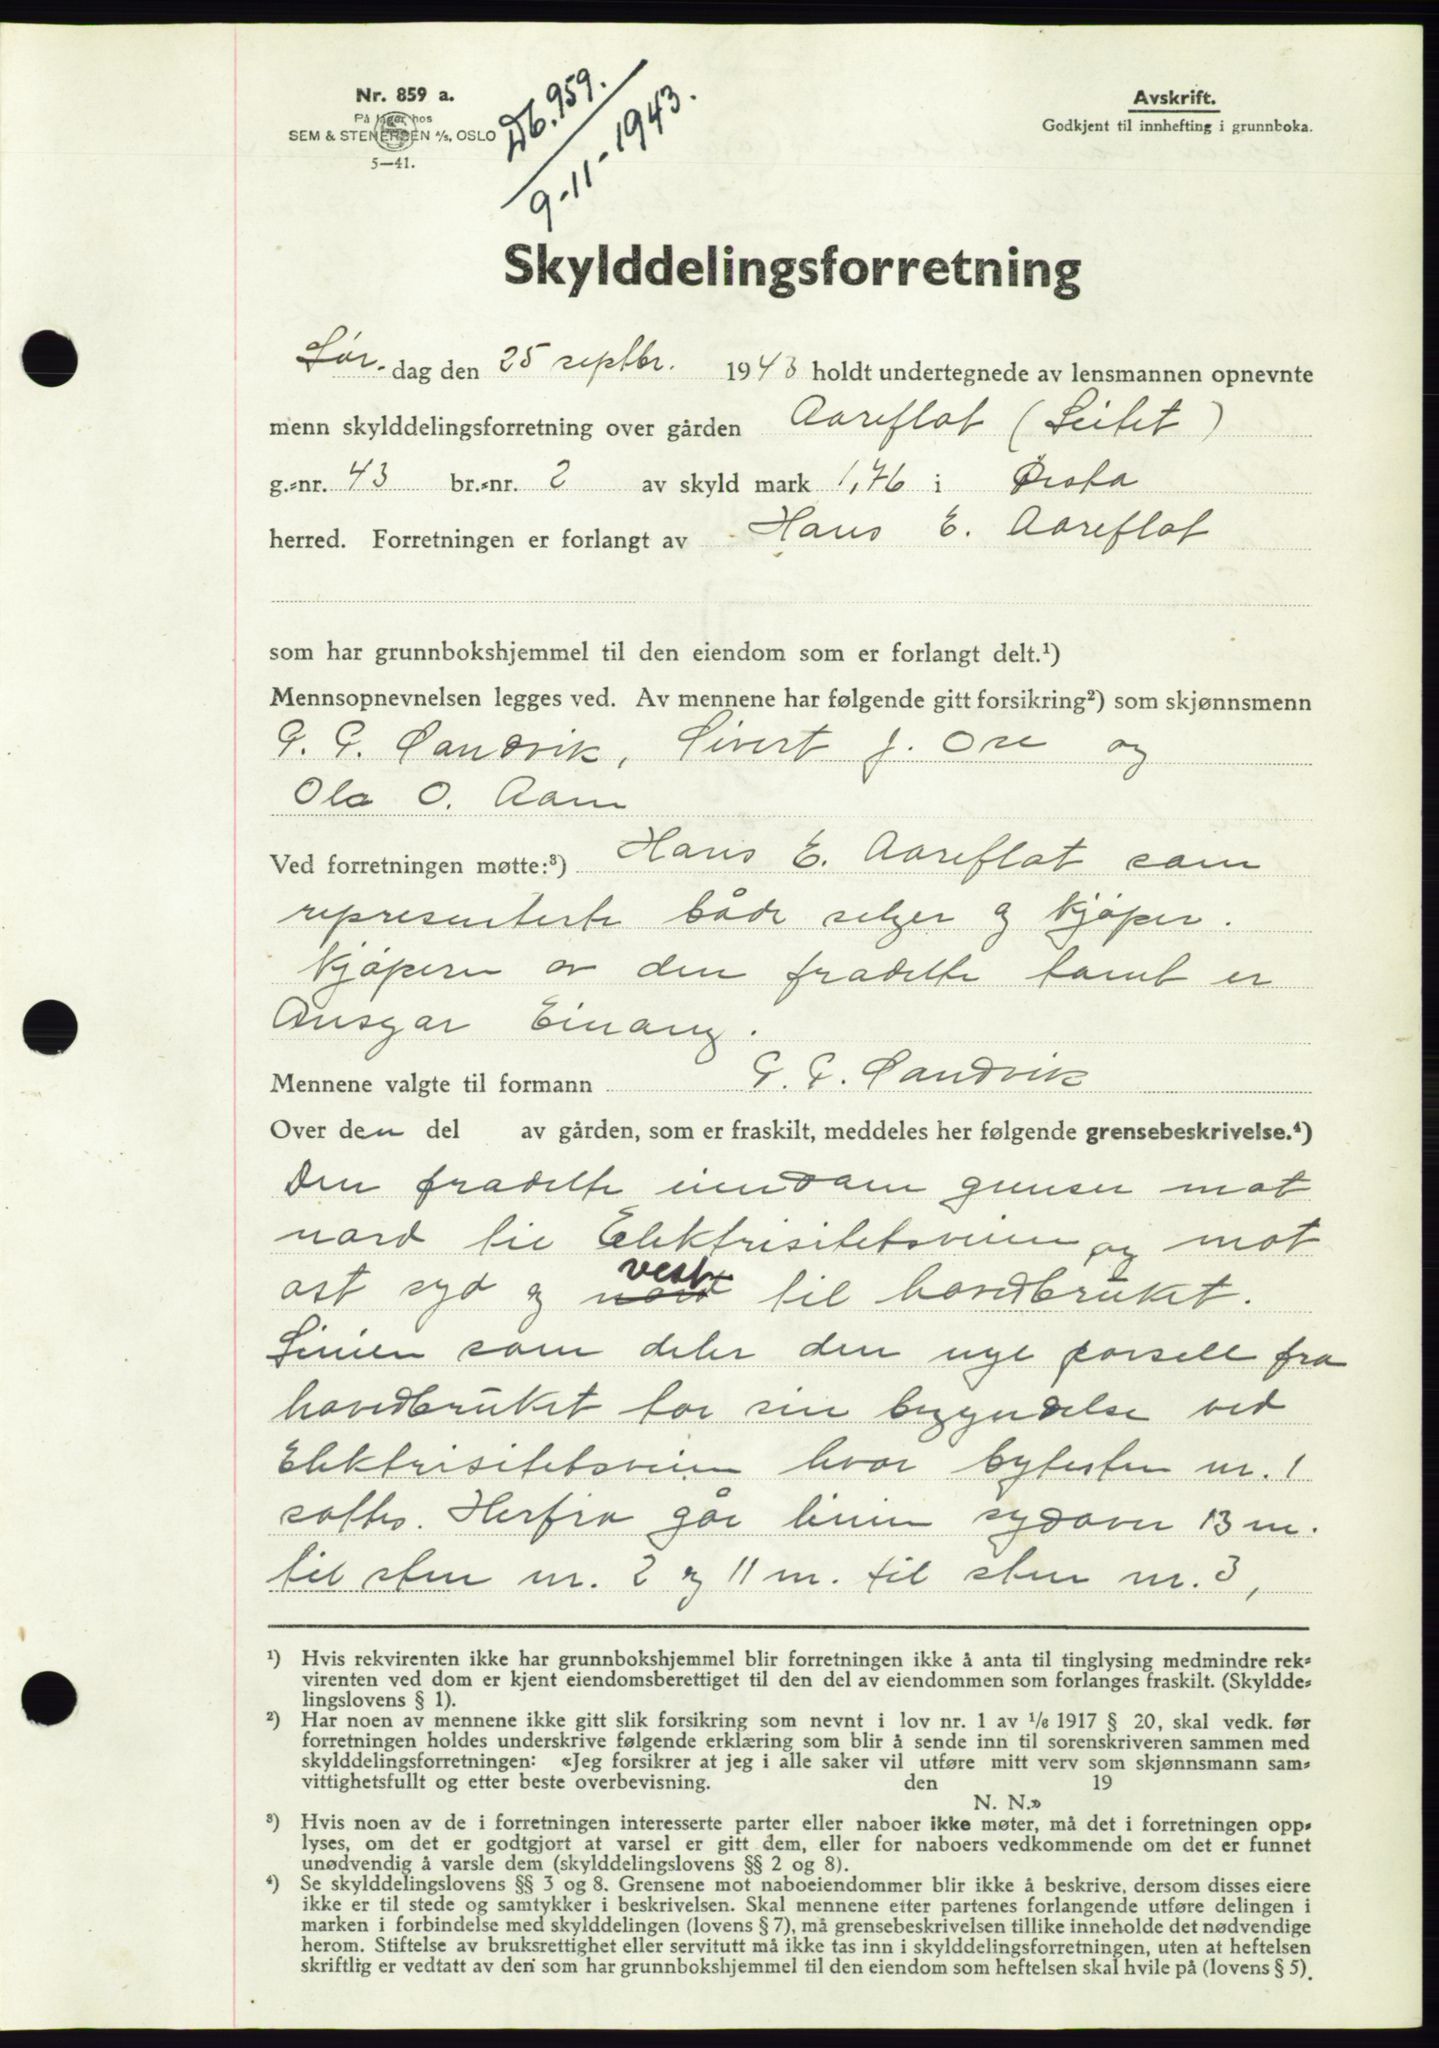 Nr. 859 a.
På lager hos
SEM & STENERSEN A/S, OSLO
5—41.
Db. 959.
9-11-1943.
Avskrift.
Godkjent til innhefting i grunnboka.
Skylddelingsforretning
Lør. dag den 25 septbr. 1943 holdt undertegnede av lensmannen opnevnte
menn skylddelingsforretning over gården Aareflot (Leitet)
g.=nr. 43 br.=nr. 2 av skyld mark 1,76 i Ørsta
herred. Forretningen er forlangt av Hans E. Aareflot
som har grunnbokshjemmel til den eiendom som er forlangt delt.¹)
Mennsopnevnelsen legges ved. Av mennene har følgende gitt forsikring²) som skjønnsmenn
G. G. Sandvik, Sivert J. Ose og
Ola O. Aam
Ved forretningen møtte:³) Hans E. Aareflot som
representerte både selger og kjøper.
Kjøperen av den fradelte tomt er
Ansgar Einang.
Mennene valgte til formann G. G. Sandvik
Over den del av gården, som er fraskilt, meddeles her følgende grensebeskrivelse.⁴)
Den fradelte eiendom grenser mot
nord til Elektrisitetsveien og mot
ost syd og nord vest til hovedbruket.
Linien som deler den nye parsell fra
hovedbruket tar sin begyndelse ved
Elektrisitetsveien hvor bytesten nr. 1
settes. Herfra går linien sydover 13 m.
til sten nr. 2 og 11 m. til sten nr. 3,
¹) Hvis rekvirenten ikke har grunnbokshjemmel blir forretningen ikke å anta til tinglysing medmindre rek=
virenten ved dom er kjent eiendomsberettiget til den del av eiendommen som forlanges fraskilt. (Skyldde=
lingslovens § 1).
²) Har noen av mennene ikke gitt slik forsikring som nevnt i lov nr. 1 av 1/6 1917 § 20, skal vedk. før
forretningen holdes underskrive følgende erklæring som blir å sende inn til sorenskriveren sammen med
skylddelingsforretningen: «Jeg forsikrer at jeg i alle saker vil utføre mitt verv som skjønnsmann sam=
vittighetsfullt og etter beste overbevisning. den 19
N. N.»
³) Hvis noen av de i forretningen interesserte parter eller naboer ikke møter, må det i forretningen opp=
lyses, om det er godtgjort at varsel er gitt dem, eller for naboers vedkommende om det er funnet
unødvendig å varsle dem (skylddelingslovens §§ 2 og 8).
⁴) Se skylddelingslovens §§ 3 og 8. Grensene mot naboeiendommer blir ikke å beskrive, dersom disses eiere
ikke er til stede og samtykker i beskrivelsen. Skal mennene etter partenes forlangende utføre delingen i
marken i forbindelse med skylddelingen (lovens § 7), må grensebeskrivelsen tillike inneholde det nødvendige
herom. Stiftelse av bruksrettighet eller servitutt må ikke tas inn i skylddelingsforretningen, uten at heftelsen
skriftlig er vedtatt av den som har grunnbokshjemmel til den eiendom som heftelsen skal hvile på (lovens § 5).